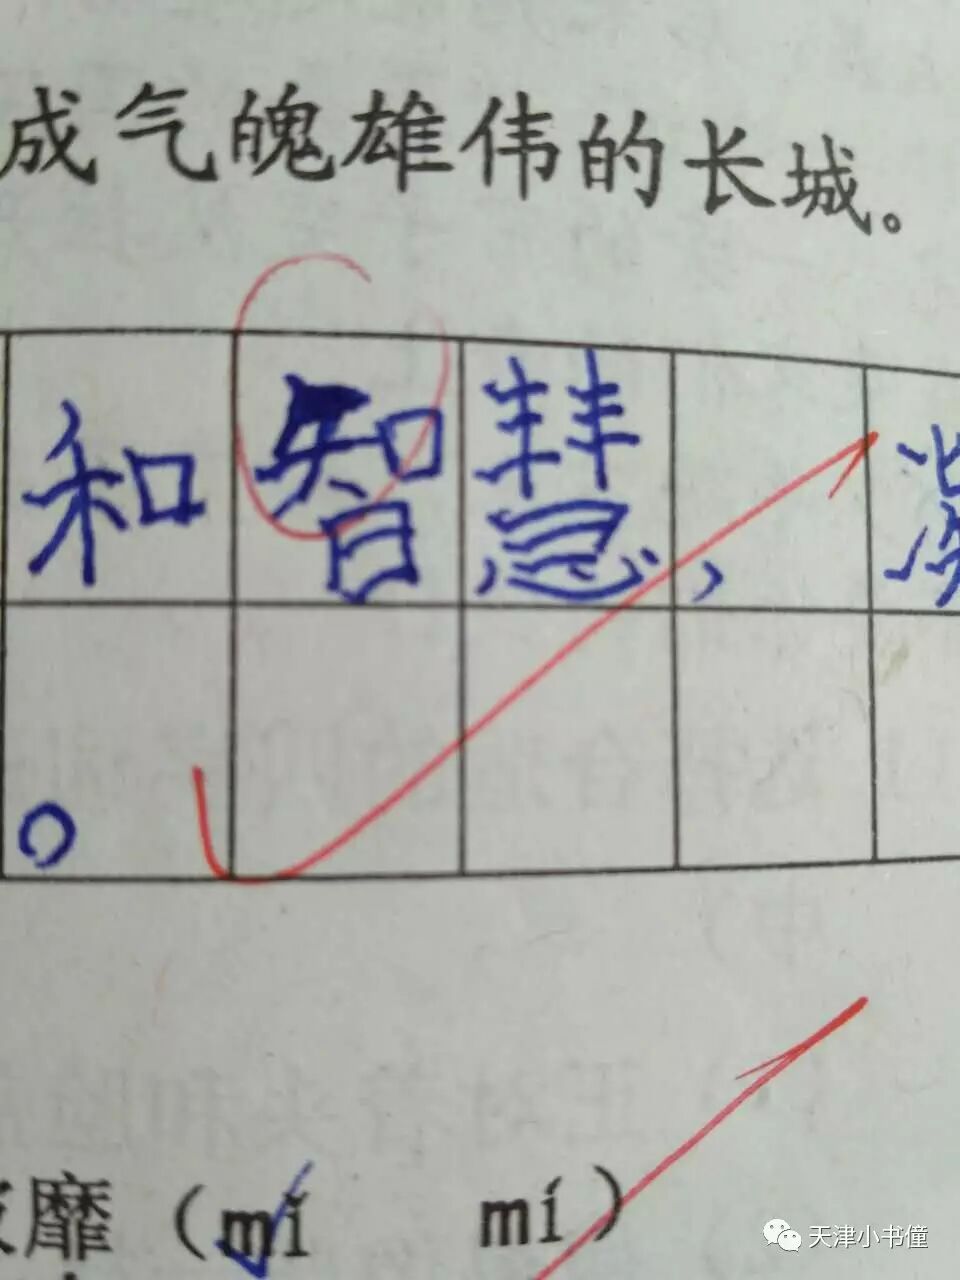 成气魄雄伟的长城。
和智慧，凝
。
披靡（mǐ mí）
天津小书僮